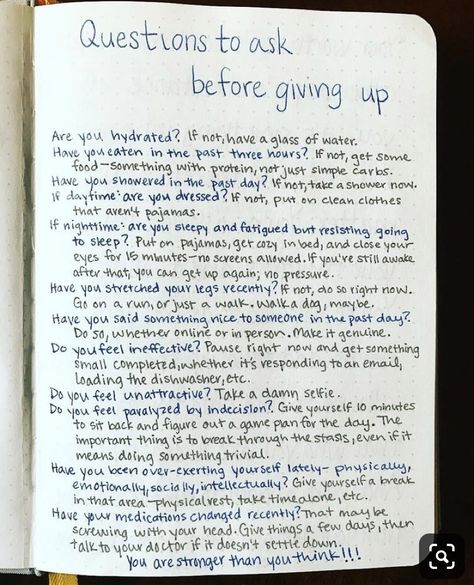 Questions to ask
before giving up
Are you hydrated? If not, have a glass of water.
Have you eaten in the past three hours? If not, get some
food—something with protein, not just simple carbs.
Have you showered in the past day? If not, take a shower now.
If daytime: are you dressed? If not, put on clean clothes
that aren't pajamas.
If nighttime: are you sleepy and fatigued but resisting going
to sleep? Put on pajamas, get cozy in bed, and close your
eyes for 15 minutes—no screens allowed. If you're still awake
after that, you can get up again; no pressure.
Have you stretched your legs recently? If not, do so right now.
Go on a run, or just a walk. Walk a dog, maybe.
Have you said something nice to someone in the past day?
Do so, whether online or in person. Make it genuine.
Do you feel ineffective? Pause right now and get something
small completed, whether it's responding to an email,
loading the dishwasher, etc.
Do you feel unattractive? Take a damn selfie.
Do you feel paralyzed by indecision? Give yourself 10 minutes
to sit back and figure out a game plan for the day. The
important thing is to break through the stasis, even if it
means doing something trivial.
Have you been over-exerting yourself lately—physically,
emotionally, socially, intellectually? Give yourself a break
in that area—physical rest, take time alone, etc.
Have your medications changed recently? That may be
screwing with your head. Give things a few days, then
talk to your doctor if it doesn't settle down.
You are stronger than you think!!!